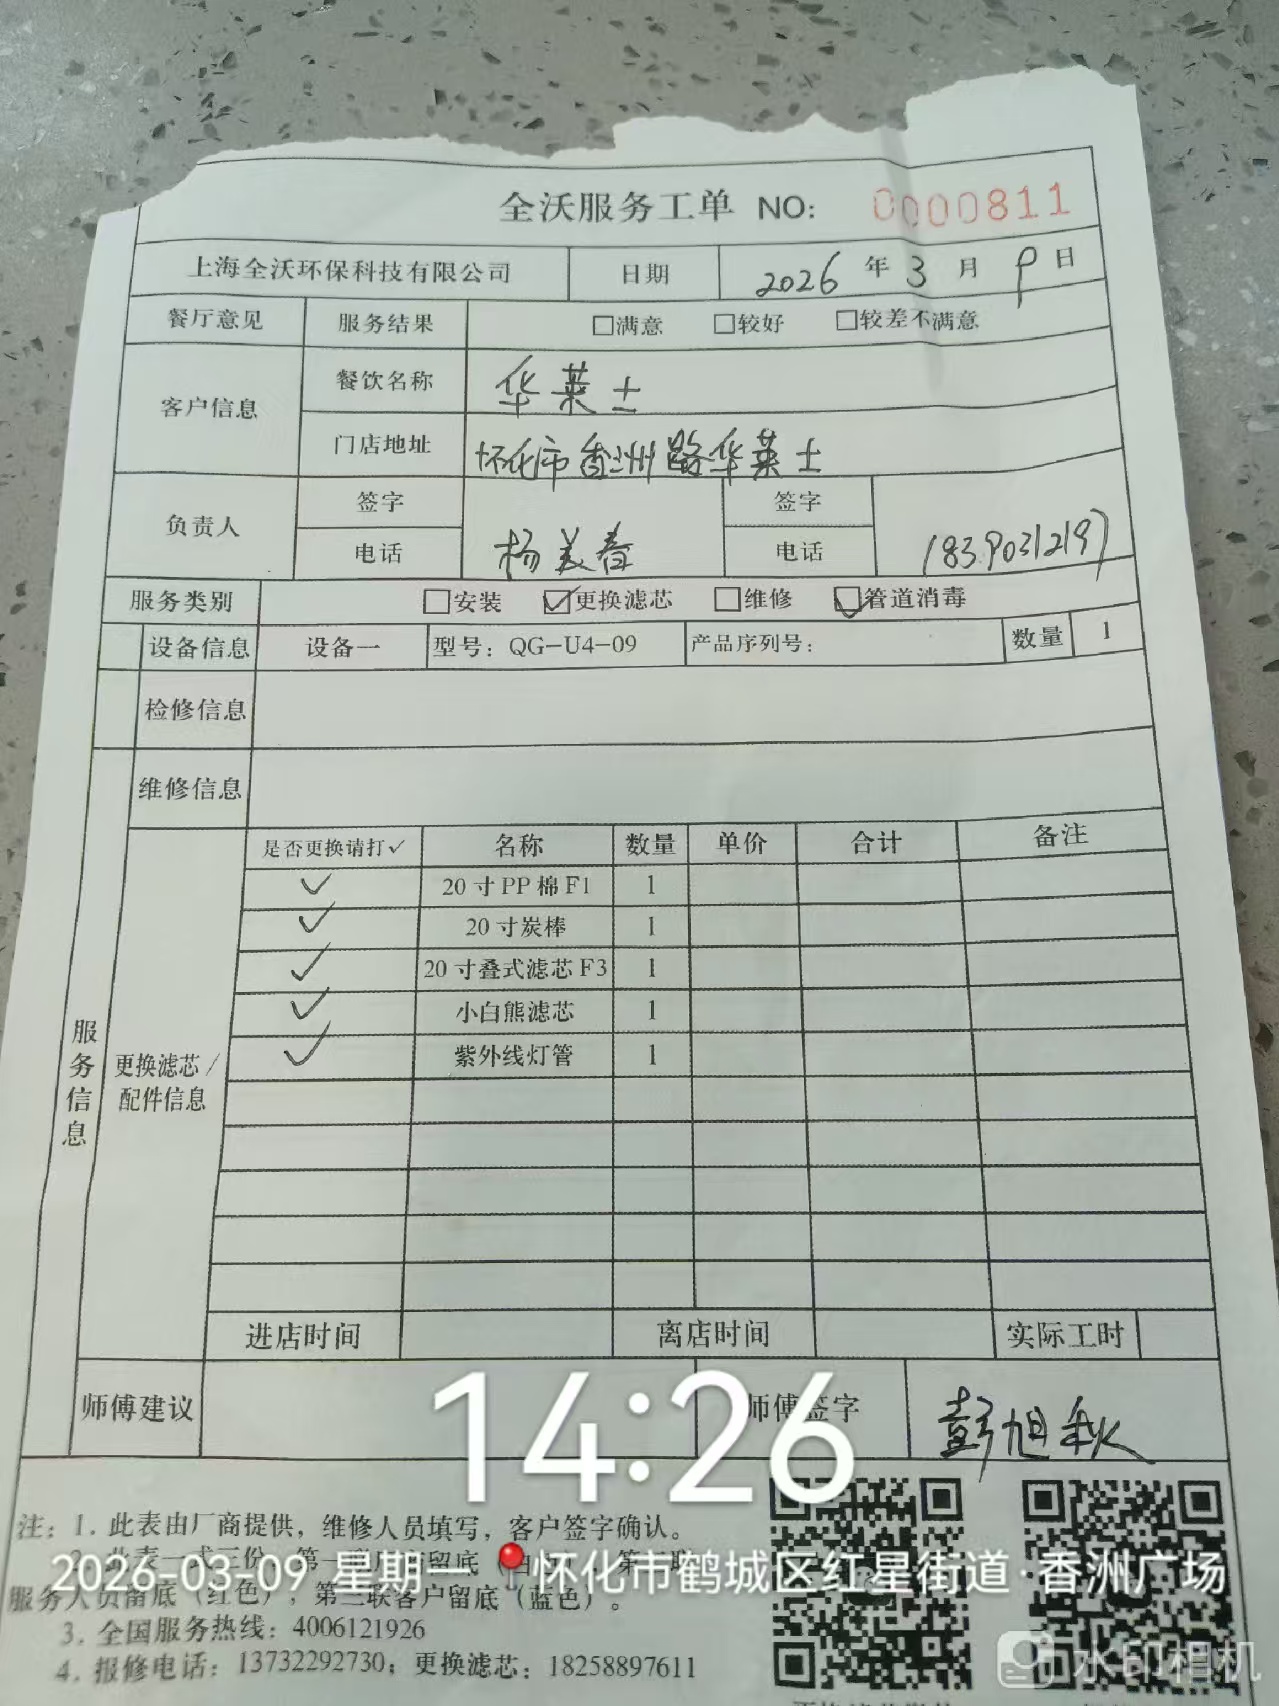 全沃服务工单 NO: 0000811
上海全沃环保科技有限公司 日期 2026年3月9日
餐厅意见 服务结果 □满意 □较好 □较差不满意
客户信息 餐饮名称 华莱士
门店地址 怀化市香洲路华莱士
负责人 签字 签字
电话 杨美春 电话 18390312197
服务类别 □安装 ☑更换滤芯 □维修 ☑管道消毒
设备信息 设备一 型号：QG-U4-09 产品序列号： 数量 1
检修信息
维修信息
是否更换请打✓ 名称 数量 单价 合计 备注
✓ 20寸PP棉F1 1
✓ 20寸炭棒 1
✓ 20寸叠式滤芯F3 1
✓ 小白熊滤芯 1
✓ 紫外线灯管 1
服务信息
更换滤芯/
配件信息
进店时间 离店时间 实际工时
师傅建议 师傅签字 彭旭秋
14:26
注：1. 此表由厂商提供，维修人员填写，客户签字确认。
2. 此表一式三份，第一联
留底
2026-03-09 星期一 怀化市鹤城区红星街道·香洲广场
服务人员留底（红色），第三联客户留底（蓝色）。
3. 全国服务热线：4006121926
4. 报修电话：13732292730；更换滤芯：18258897611
水印相机